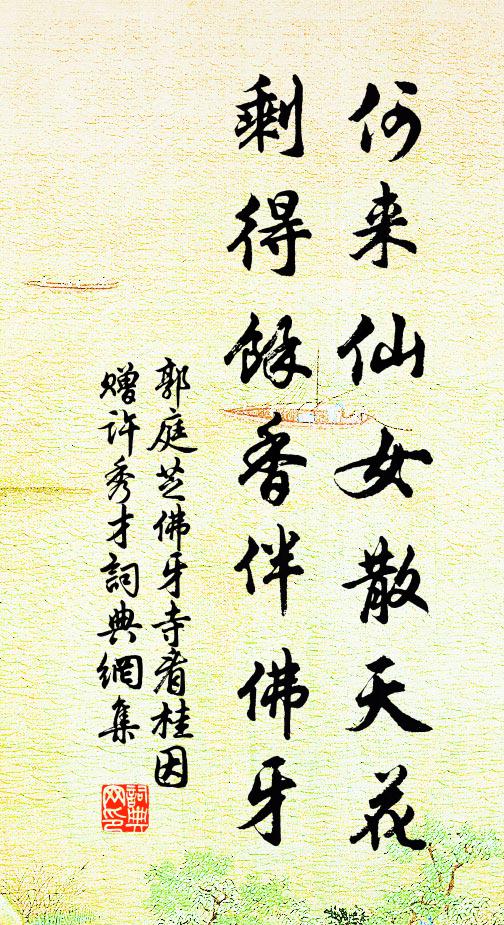 何来仙女散天花
剩得餘香伴佛牙
郭庭芝佛牙寺看桂因
贈许秀才詞典網集
詞典
网印